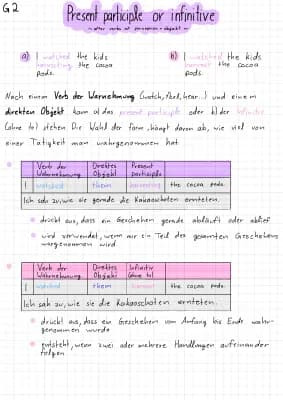 G2
Present participle or infinitive
~ after verbs of perception + objekt ~
a) I watched the kids
harvesting the cocoa
pods.
b) I watched the kids
harvest the cocoa
pods.
Nach einem Verb der Warnehmung (watch, feel, hear ...) und einem
direkten Objekt kann a) das present participle oder b) der Infinitiv
(ohne to) stehen. Die Wahl der Form hängt davon ab, wie viel von
einer Tätigkeit man wahrgenommen hat.
Verb der Wahrnehmung Direktes Objekt Present participle
I watched them harvesting the cocoa pods.
Ich sah zu, wie sie gerade die Kakaoschoten ernteten.
drückt aus, dass ein Geschehen gerade abläuft oder ablief
wird verwendet, wenn nur ein Teil des gesamten Geschehens
wargenommen wird
Verb der Wahrnehmung Direktes Objekt Infinitiv (ohne to)
I watched them harvest the cocoa pods.
Ich sah zu, wie sie die Kakaoschoten ernteten.
drückt aus, dass ein Geschehen vom Anfang bis Ende wahr-
genommen wurde
entsteht, wenn zwei oder mehrere Handlungen aufeinander
folgen